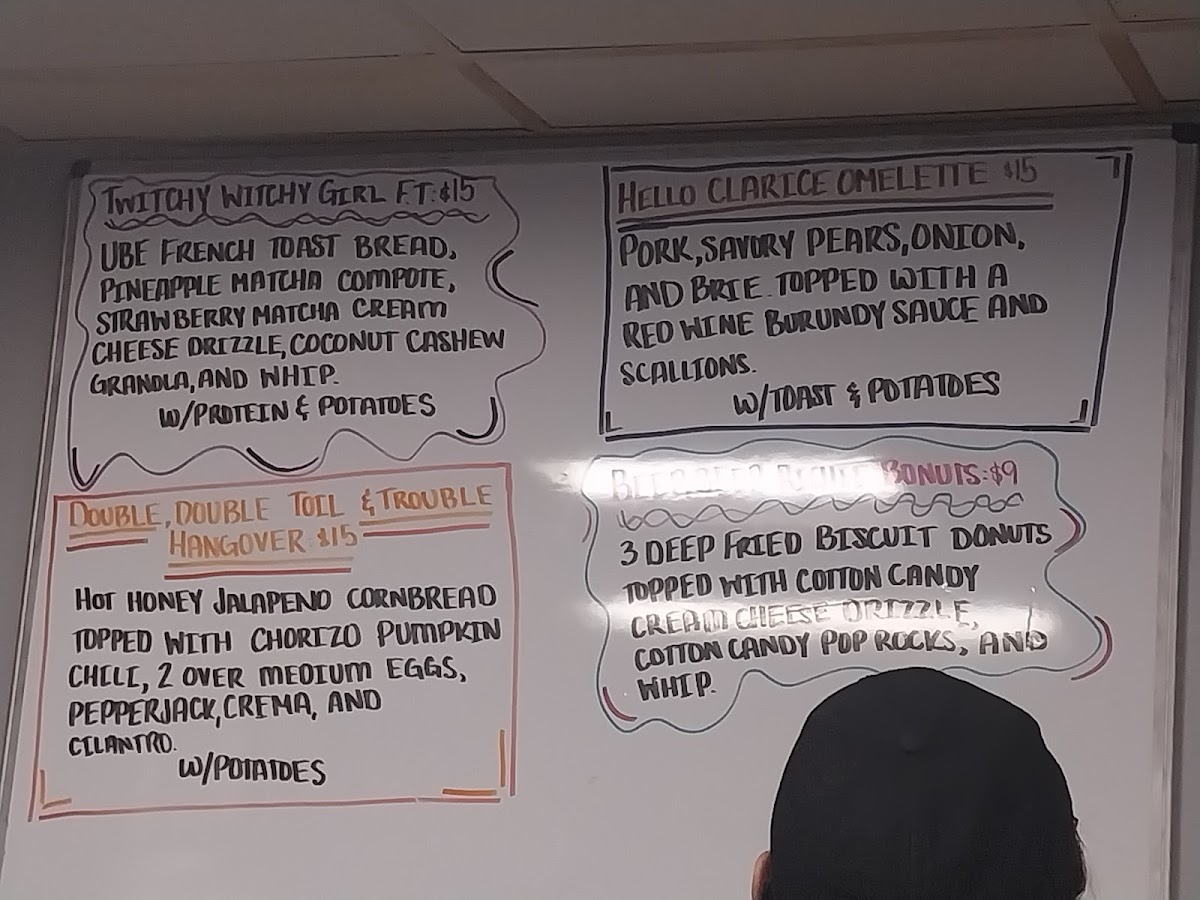 TWITCHY WITCHY GIRL F.T.:$15
UBE FRENCH TOAST BREAD,
PINEAPPLE MATCHA COMPOTE,
STRAWBERRY MATCHA CREAM
CHEESE DRIZZLE, COCONUT CASHEW
GRANOLA, AND WHIP.
W/PROTEIN & POTATOES
DOUBLE, DOUBLE TOIL & TROUBLE
HANGOVER $15
HOT HONEY JALAPENO CORNBREAD
TOPPED WITH CHORIZO PUMPKIN
CHILI, 2 OVER MEDIUM EGGS,
PEPPERJACK, CREMA, AND
CILANTRO.
W/POTATOES
HELLO CLARICE OMELETTE $15
PORK, SAVORY PEARS, ONION,
AND BRIE. TOPPED WITH A
RED WINE BURUNDY SAUCE AND
SCALLIONS.
W/TOAST & POTATOES
BONUTS:$9
3 DEEP FRIED BISCUIT DONUTS
TOPPED WITH COTTON CANDY
CREAM CHEESE DRIZZLE,
COTTON CANDY POP ROCKS, AND
WHIP.